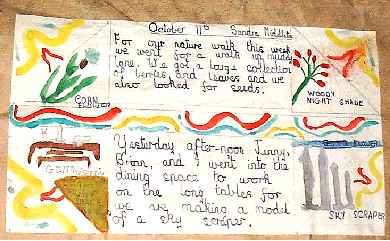 October 11th Sandra
For our nature walk this week
we went for a walk up muddy
lane. We got a large collection
of berries and leaves and we
also looked for seeds.
CORN
WOODY
NIGHT SHADE
Yesterday after-noon Jenny,
Brian, and I went into the
dining space to work
on the long tables for
we making a model
of a sky scraper.
SKY SCRAPER